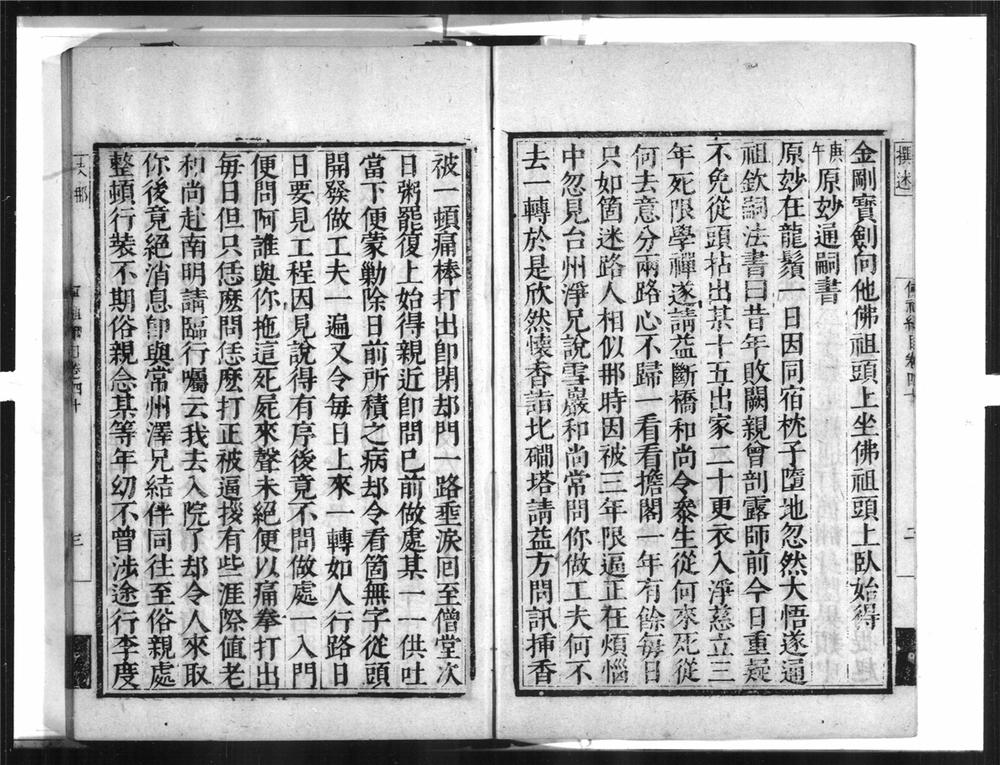 撰述
金剛寶劍向他佛祖頭上坐佛祖頭上臥始得
庚午原妙通嗣書
原妙在龍鬚一日因同宿枕子墮地忽然大悟遂通
祖欽嗣法書曰昔年敗闕親曾剖露師前今日重疑
不免從頭拈出某十五出家二十更衣入淨慈立三
年死限學禪遂請益斷橋和尚令參生從何來死從
何去意分兩路心不歸一看看擔閣一年有餘每日
只如箇迷路人相似那時因被三年限逼正在煩惱
中忽見台州淨兄說雪巖和尚常問你做工夫何不
去一轉於是欣然懷香詣北磵塔請益方問訊揷香
被一頓痛棒打出卽閉却門一路垂淚囘至僧堂次
日粥罷復上始得親近卽問已前做處某一一供吐
當下便蒙勦除日前所積之病却令看箇無字從頭
開發做工夫一遍又令每日上來一轉如人行路日
日要見工程因見說得有序後竟不問做處一入門
便問阿誰與你拖這死屍來聲未絕便以痛拳打出
每日但只恁麼問恁麼打正被逼拶有些涯際值老
和尚赴南明請臨行囑云我去入院了却令人來取
你後竟絕消息卽與常州澤兄結伴同往至俗親處
整頓行裝不期俗親念某等年幼不曾涉途行李度
三